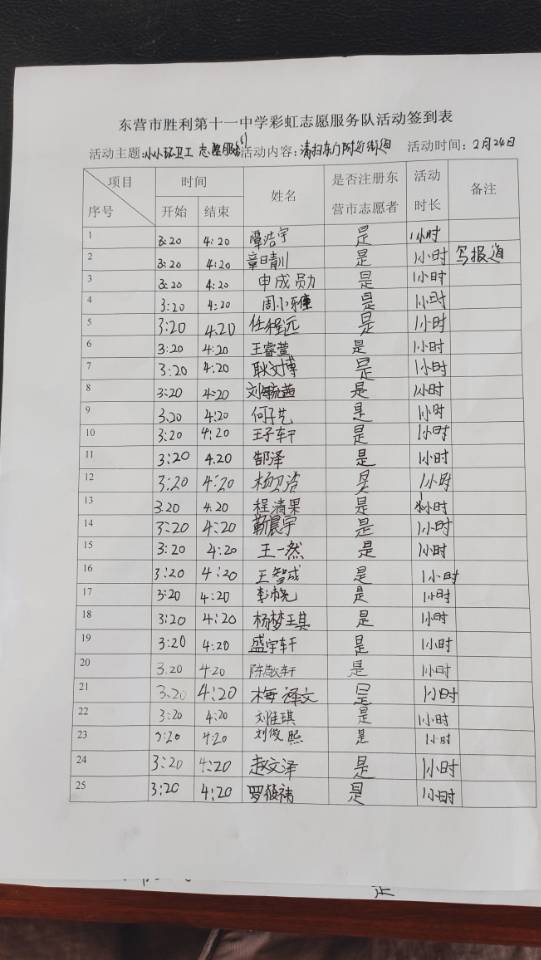 东营市胜利第十一中学彩虹志愿服务队活动签到表
活动主题:小小环卫工 志愿服务 活动内容:清扫东门附近街道 活动时间:2月24日
项目 时间 姓名 是否注册东营市志愿者 活动时长 备注
序号 开始 结束
1 3:20 4:20 覃浩宇 是 1小时
2 3:20 4:20 章日晴川 是 1小时 写报道
3 3:20 4:20 申成勋 是 1小时
4 3:20 4:20 周小雅 是 1小时
5 3:20 4:20 任程远 是 1小时
6 3:20 4:20 王睿萱 是 1小时
7 3:20 4:20 耿文博 是 1小时
8 3:20 4:20 刘毓茜 是 1小时
9 3.20 4:20 何子先 是 1小时
10 3:20 4:20 王子轩 是 1小时
11 3:20 4.20 郜泽 是 1小时
12 3:20 4:20 杨卫浩 是 1小时
13 3.20 4.20 程清果 是 1小时
14 3:20 4:20 靳晨宇 是 1小时
15 3:20 4:20 王一然 是 1小时
16 3:20 4:20 王智成 是 1小时
17 3:20 4:20 是 1小时
18 3:20 4:20 杨梦琪 是 1小时
19 3:20 4:20 盛宇轩 是 1小时
20 3.20 4:20 陈敬轩 是 1小时
21 3.20 4:20 梅译文 是 1小时
22 3:20 4:20 刘佳琪 是 1小时
23 3:20 4:20 刘俊熙 是 1小时
24 3:20 4:20 赵文泽 是 1小时
25 3:20 4:20 罗筱祎 是 1小时